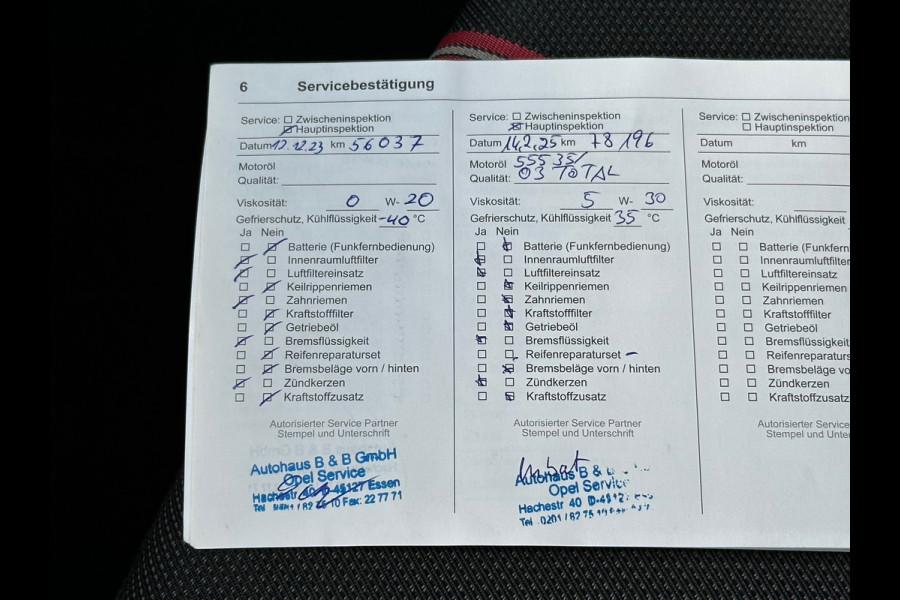 6 Servicebestätigung
Service: Zwischeninspektion
Hauptinspektion
Datum 12.12.23 km 56037
Motoröl
Qualität:
Viskosität: 0 W- 20
Gefrierschutz, Kühlflüssigkeit -40 °C
Ja Nein
Batterie (Funkfernbedienung)
Innenraumluftfilter
Luftfiltereinsatz
Keilrippenriemen
Zahnriemen
Kraftstofffilter
Getriebeöl
Bremsflüssigkeit
Reifenreparaturset
Bremsbeläge vorn / hinten
Zündkerzen
Kraftstoffzusatz
Autorisierter Service Partner
Stempel und Unterschrift
Autohaus B & B GmbH
Opel Service
Hachestr 40 D-45127 Essen
Fax: 22 77 71
Service: Zwischeninspektion
Hauptinspektion
Datum 14.2.25 km 78196
Motoröl 555 35/
Qualität: 03 TOTAL
Viskosität: 5 W- 30
Gefrierschutz, Kühlflüssigkeit 35 °C
Ja Nein
Batterie (Funkfernbedienung)
Innenraumluftfilter
Luftfiltereinsatz
Keilrippenriemen
Zahnriemen
Kraftstofffilter
Getriebeöl
Bremsflüssigkeit
Reifenreparaturset –
Bremsbeläge vorn / hinten
Zündkerzen
Kraftstoffzusatz
Autorisierter Service Partner
Stempel und Unterschrift
Autohaus B &
Opel Service
Hachestr 40
Tel. 0201 / 82 75
Service: Zwischeninspektion
Hauptinspektion
Datum km
Motoröl
Qualität:
Viskosität:
Gefrierschutz, Kühlflüssigkeit
Ja Nein
Batterie (Funkfern
Innenraumluftfilter
Luftfiltereinsatz
Keilrippenriemen
Zahnriemen
Kraftstofffilter
Getriebeöl
Bremsflüssigkeit
Reifenreparaturs
Bremsbeläge vo
Zündkerzen
Kraftstoffzusatz
Autorisierter Service
Stempel und Unter